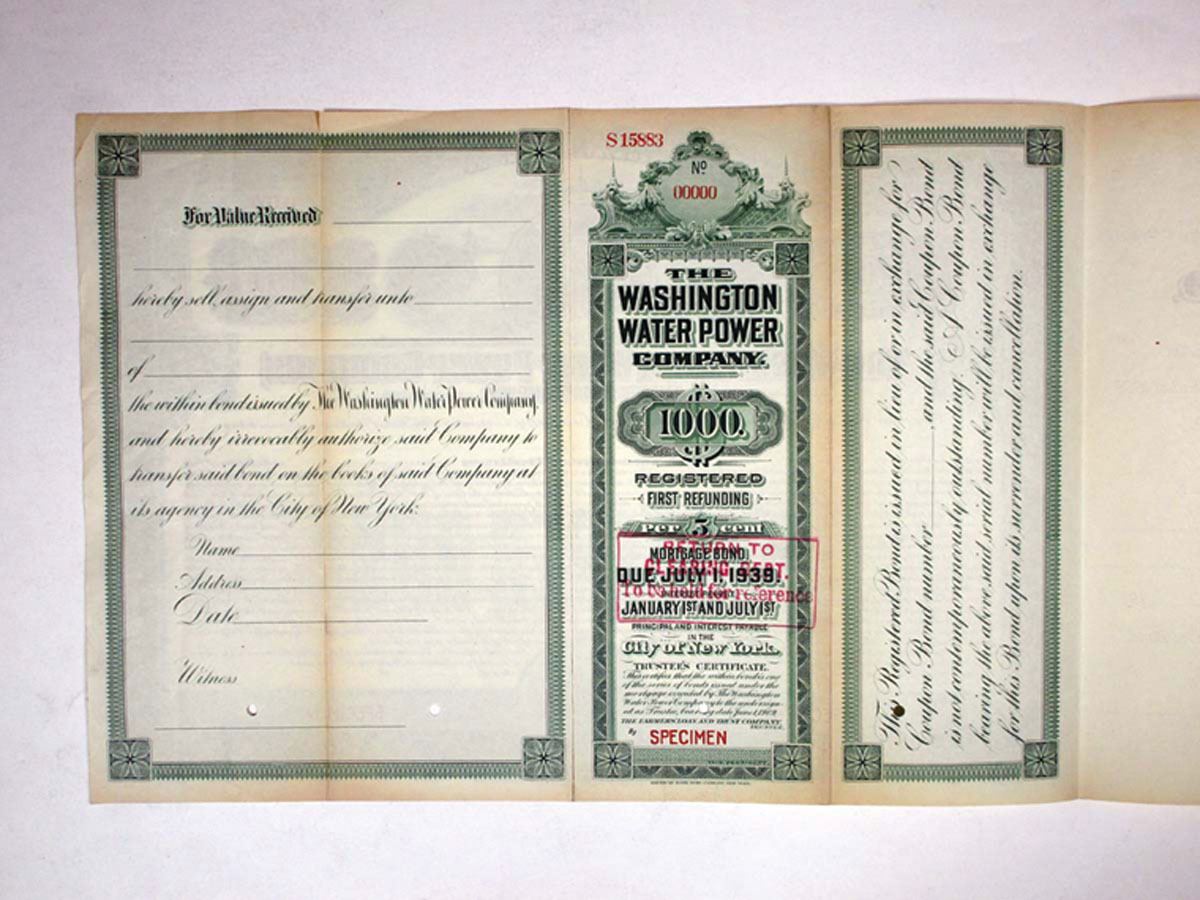 For Value Received
hereby sell, assign and transfer unto
of
the within bond issued by The Washington Water Power Company,
and hereby irrevocably authorize said Company to
transfer said bond on the books of said Company at
its agency in the City of New York.
Name
Address
Date
Witness
S 15883
No
00000
THE
WASHINGTON
WATER POWER
COMPANY.
1000.
REGISTERED
FIRST REFUNDING
PER 5 CENT
MORTGAGE BOND
DUE JULY 1, 1939.
INTEREST PAYABLE
JANUARY 1ST AND JULY 1ST
PRINCIPAL AND INTEREST PAYABLE
IN THE
City of New York.
RETURN TO
CLEARING DEPT.
To be held for reference
TRUSTEE'S CERTIFICATE.
This certifies that the within bond is one
of the series of bonds issued under the
mortgage executed by The Washington
Water Power Company to the undersigned
as Trustee, bearing date June 1, 1909.
THE FARMERS LOAN AND TRUST COMPANY,
TRUSTEE.
By SPECIMEN
VICE PRESIDENT.
This Registered Bond is issued in lieu of or in exchange for
Coupon Bond number and the said Coupon Bond
is not contemporaneously outstanding. A Coupon Bond
bearing the above said serial number will be issued in exchange
for this Bond upon its surrender and cancellation.